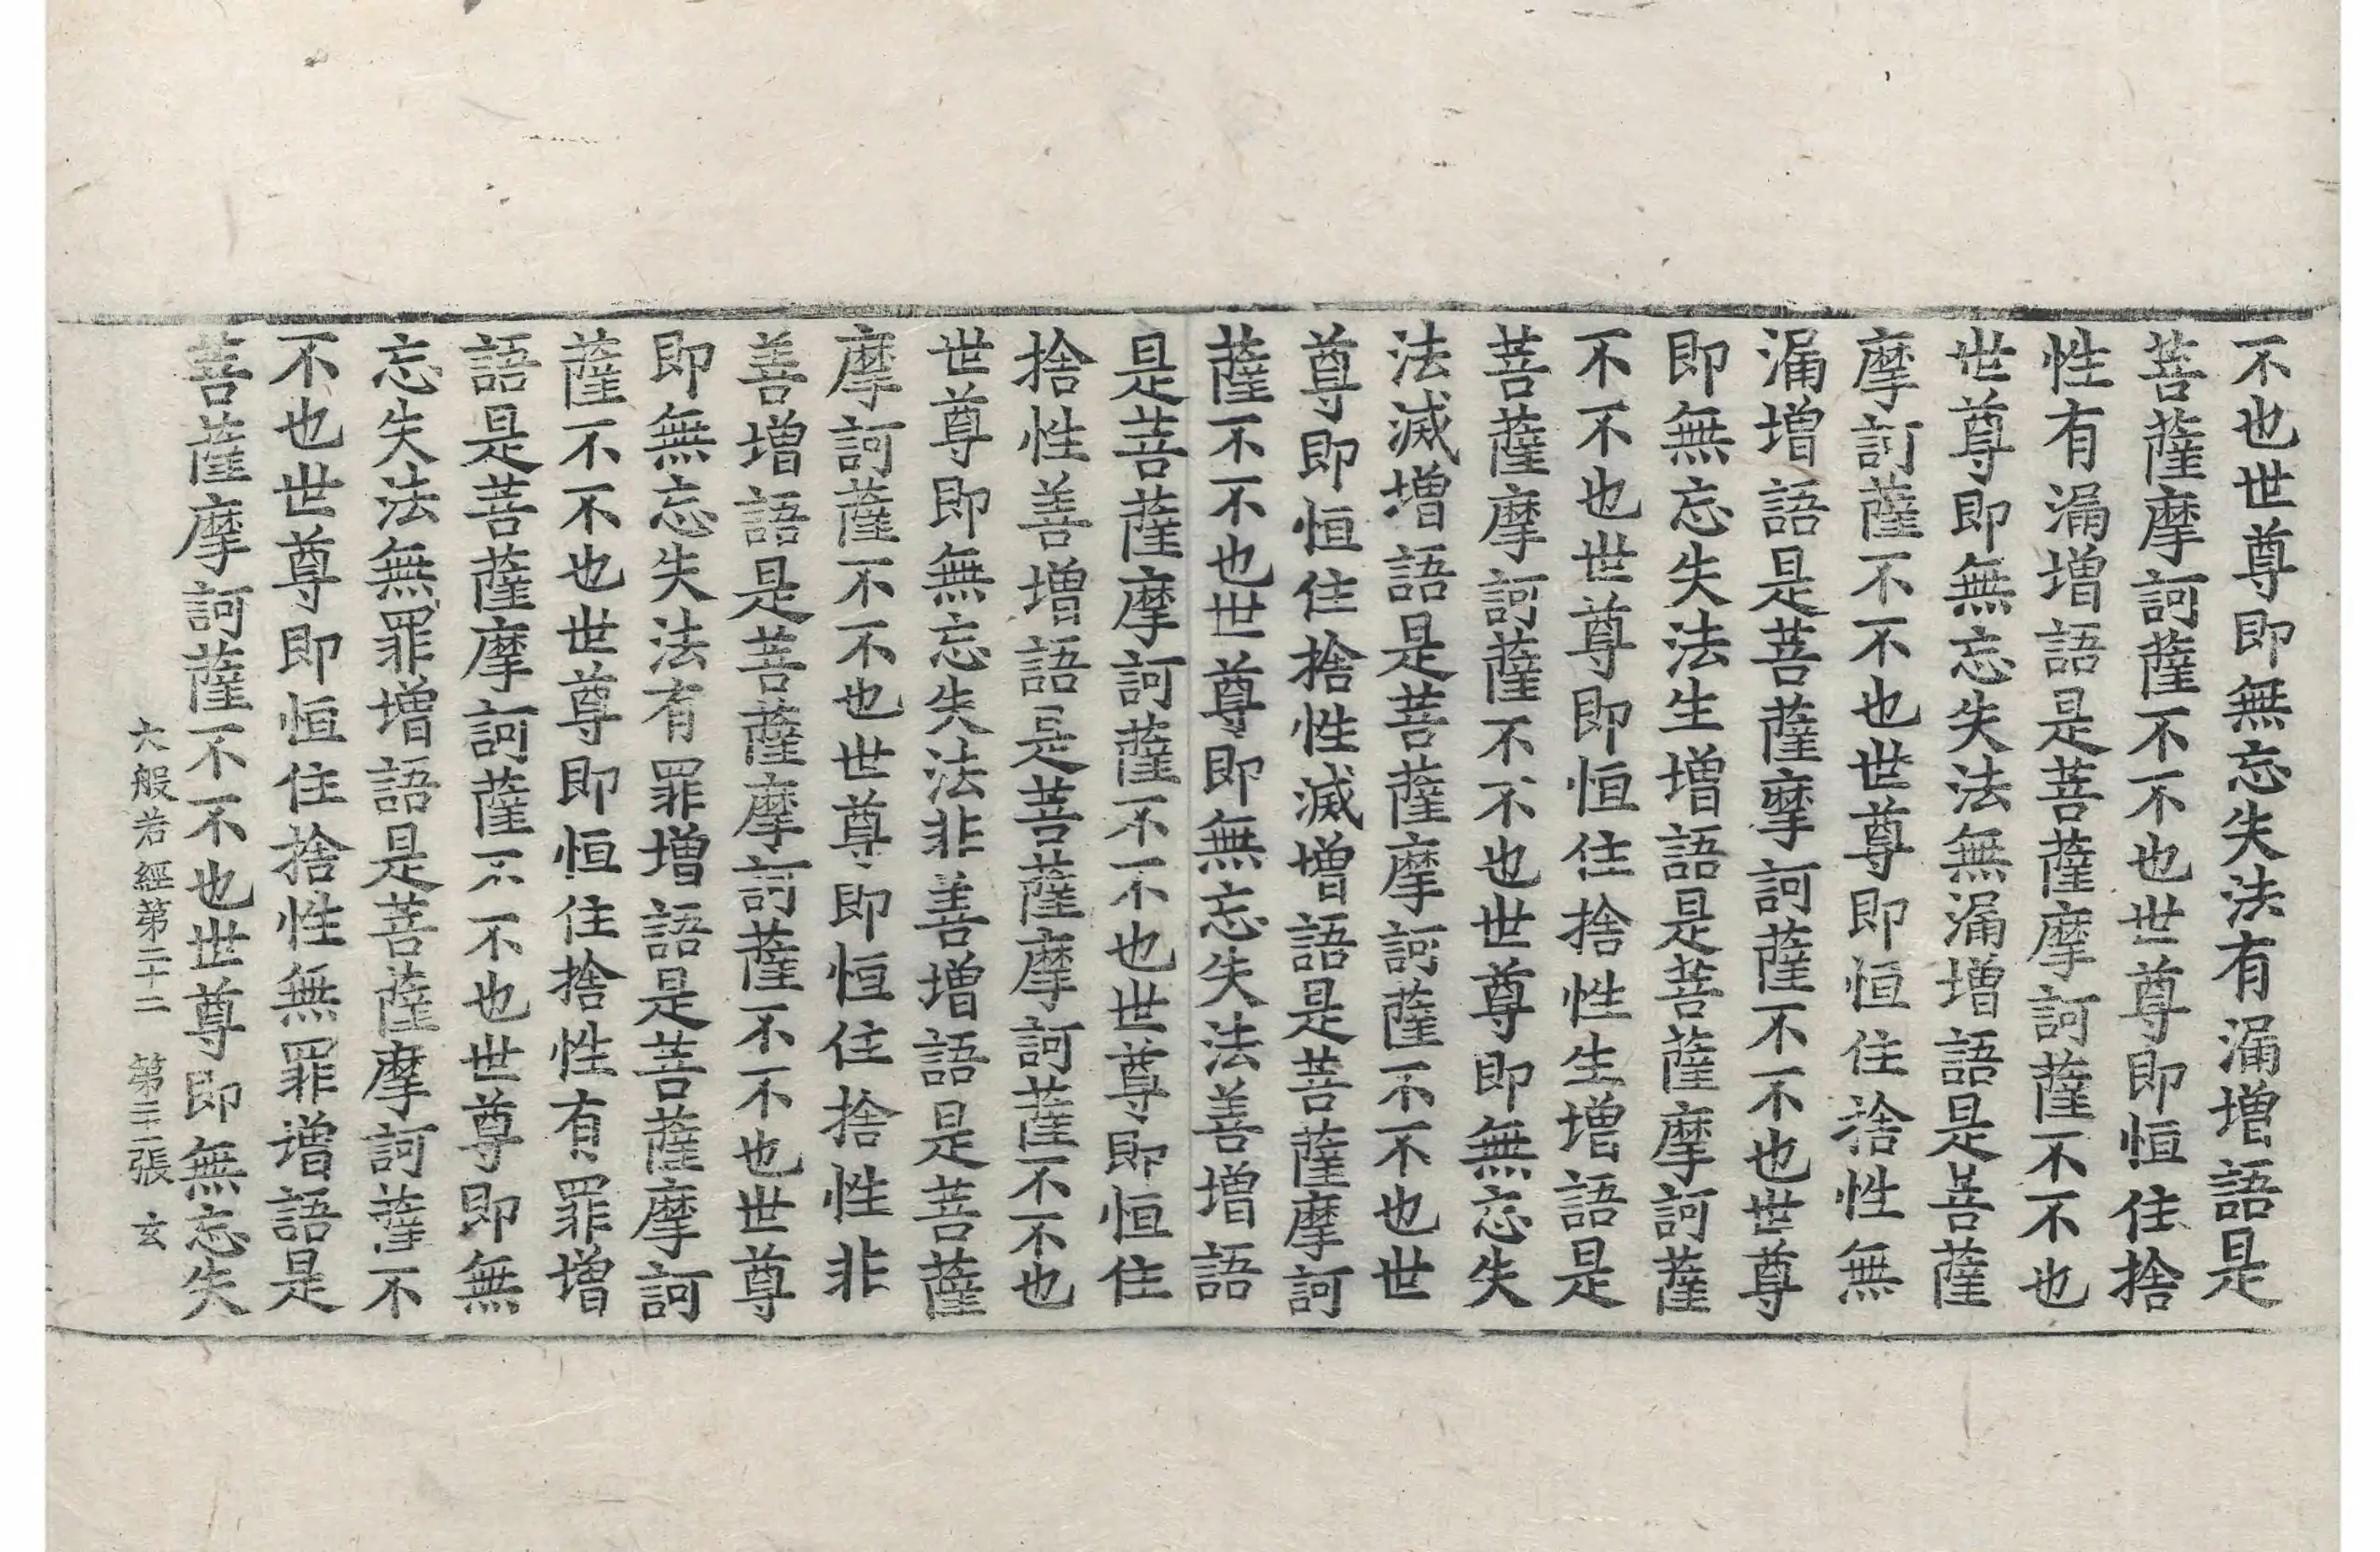 不也世尊即無忘失法有漏增語是
菩薩摩訶薩不不也世尊即恒住捨
性有漏增語是菩薩摩訶薩不不也
世尊即無忘失法無漏增語是菩薩
摩訶薩不不也世尊即恒住捨性無
漏增語是菩薩摩訶薩不不也世尊
即無忘失法生增語是菩薩摩訶薩
不不也世尊即恒住捨性生增語是
菩薩摩訶薩不不也世尊即無忘失
法滅增語是菩薩摩訶薩不不也世
尊即恒住捨性滅增語是菩薩摩訶
薩不不也世尊即無忘失法善增語
是菩薩摩訶薩不不也世尊即恒住
捨性善增語是菩薩摩訶薩不不也
世尊即無忘失法非善增語是菩薩
摩訶薩不不也世尊即恒住捨性非
善增語是菩薩摩訶薩不不也世尊
即無忘失法有罪增語是菩薩摩訶
薩不不也世尊即恒住捨性有罪增
語是菩薩摩訶薩不不也世尊即無
忘失法無罪增語是菩薩摩訶薩不
不也世尊即恒住捨性無罪增語是
菩薩摩訶薩不不也世尊即無忘失
大般若經第二十二 第二十二張 玄